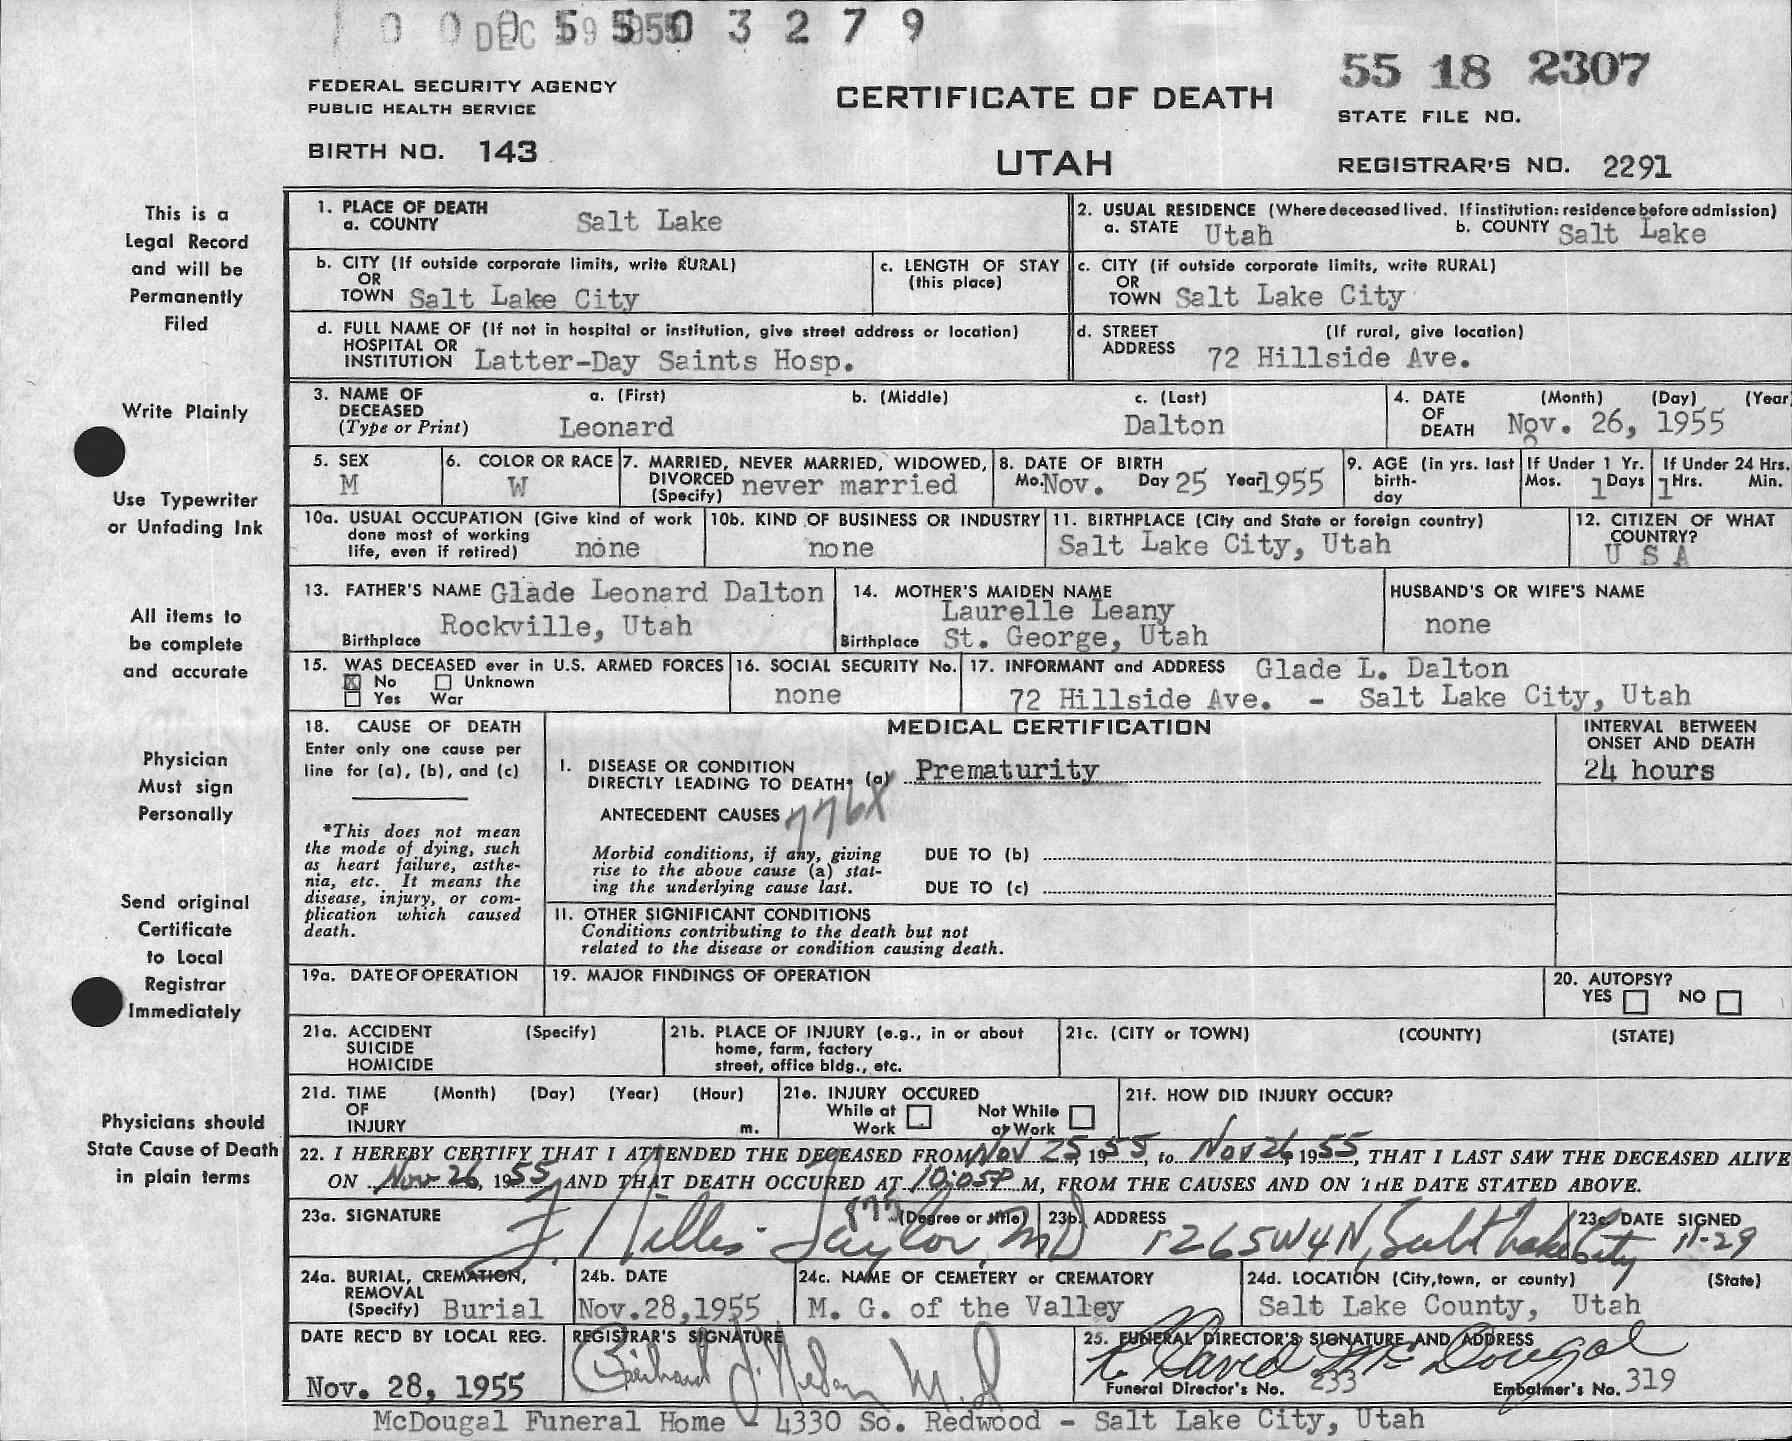 1 0 0 0 5 5 0 3 2 7 9
DEC 9 1955
55 18 2307
FEDERAL SECURITY AGENCY
PUBLIC HEALTH SERVICE
CERTIFICATE OF DEATH
STATE FILE NO.
BIRTH NO. 143
UTAH
REGISTRAR'S NO. 2291
This is a
Legal Record
and will be
Permanently
Filed
Write Plainly
Use Typewriter
or Unfading Ink
All items to
be complete
and accurate
Physician
Must sign
Personally
Send original
Certificate
to Local
Registrar
Immediately
Physicians should
State Cause of Death
in plain terms
1. PLACE OF DEATH
a. COUNTY Salt Lake
2. USUAL RESIDENCE (Where deceased lived. If institution: residence before admission)
a. STATE Utah b. COUNTY Salt Lake
b. CITY (If outside corporate limits, write RURAL)
OR
TOWN Salt Lake City
c. LENGTH OF STAY
(this place)
c. CITY (if outside corporate limits, write RURAL)
OR
TOWN Salt Lake City
d. FULL NAME OF (If not in hospital or institution, give street address or location)
HOSPITAL OR
INSTITUTION Latter-Day Saints Hosp.
d. STREET (If rural, give location)
ADDRESS 72 Hillside Ave.
3. NAME OF a. (First) b. (Middle) c. (Last)
DECEASED
(Type or Print) Leonard Dalton
4. DATE (Month) (Day) (Year)
OF
DEATH Nov. 26, 1955
5. SEX
M
6. COLOR OR RACE
W
7. MARRIED, NEVER MARRIED, WIDOWED,
DIVORCED
(Specify) never married
8. DATE OF BIRTH
Mo. Nov. Day 25 Year 1955
9. AGE (in yrs. last
birth-
day
If Under 1 Yr.
Mos. 1 Days
If Under 24 Hrs.
1 Hrs. Min.
10a. USUAL OCCUPATION (Give kind of work
done most of working
life, even if retired) none
10b. KIND OF BUSINESS OR INDUSTRY
none
11. BIRTHPLACE (City and State or foreign country)
Salt Lake City, Utah
12. CITIZEN OF WHAT
COUNTRY?
U S A
13. FATHER'S NAME Glade Leonard Dalton
Birthplace Rockville, Utah
14. MOTHER'S MAIDEN NAME
Laurelle Leany
Birthplace St. George, Utah
HUSBAND'S OR WIFE'S NAME
none
15. WAS DECEASED ever in U.S. ARMED FORCES
X No Unknown
Yes War
16. SOCIAL SECURITY No.
none
17. INFORMANT and ADDRESS Glade L. Dalton
72 Hillside Ave. - Salt Lake City, Utah
18. CAUSE OF DEATH
Enter only one cause per
line for (a), (b), and (c)
*This does not mean
the mode of dying, such
as heart failure, asthe-
nia, etc. It means the
disease, injury, or com-
plication which caused
death.
MEDICAL CERTIFICATION
INTERVAL BETWEEN
ONSET AND DEATH
24 hours
I. DISEASE OR CONDITION
DIRECTLY LEADING TO DEATH* (a) Prematurity
ANTECEDENT CAUSES
Morbid conditions, if any, giving
rise to the above cause (a) stat-
ing the underlying cause last.
DUE TO (b)
DUE TO (c)
II. OTHER SIGNIFICANT CONDITIONS
Conditions contributing to the death but not
related to the disease or condition causing death.
19a. DATE OF OPERATION
19. MAJOR FINDINGS OF OPERATION
20. AUTOPSY?
YES NO
21a. ACCIDENT (Specify)
SUICIDE
HOMICIDE
21b. PLACE OF INJURY (e.g., in or about
home, farm, factory
street, office bldg., etc.
21c. (CITY or TOWN) (COUNTY) (STATE)
21d. TIME (Month) (Day) (Year) (Hour)
OF
INJURY m.
21e. INJURY OCCURED
While at Work Not While at Work
21f. HOW DID INJURY OCCUR?
22. I HEREBY CERTIFY THAT I ATTENDED THE DECEASED FROM Nov 25, 1955, to Nov 26, 1955, THAT I LAST SAW THE DECEASED ALIVE
ON Nov 26, 1955, AND THAT DEATH OCCURED AT 10:05P M, FROM THE CAUSES AND ON THE DATE STATED ABOVE.
23a. SIGNATURE (Degree or title)
Taylor MD
23b. ADDRESS
1265 W 4 N, Salt Lake City
23c. DATE SIGNED
11-29
24a. BURIAL, CREMATION,
REMOVAL
(Specify) Burial
24b. DATE
Nov. 28, 1955
24c. NAME OF CEMETERY or CREMATORY
M. G. of the Valley
24d. LOCATION (City, town, or county) (State)
Salt Lake County, Utah
DATE REC'D BY LOCAL REG.
Nov. 28, 1955
REGISTRAR'S SIGNATURE
25. FUNERAL DIRECTOR'S SIGNATURE AND ADDRESS
David McDougal
Funeral Director's No. 233 Embalmer's No. 319
McDougal Funeral Home - 4330 So. Redwood - Salt Lake City, Utah